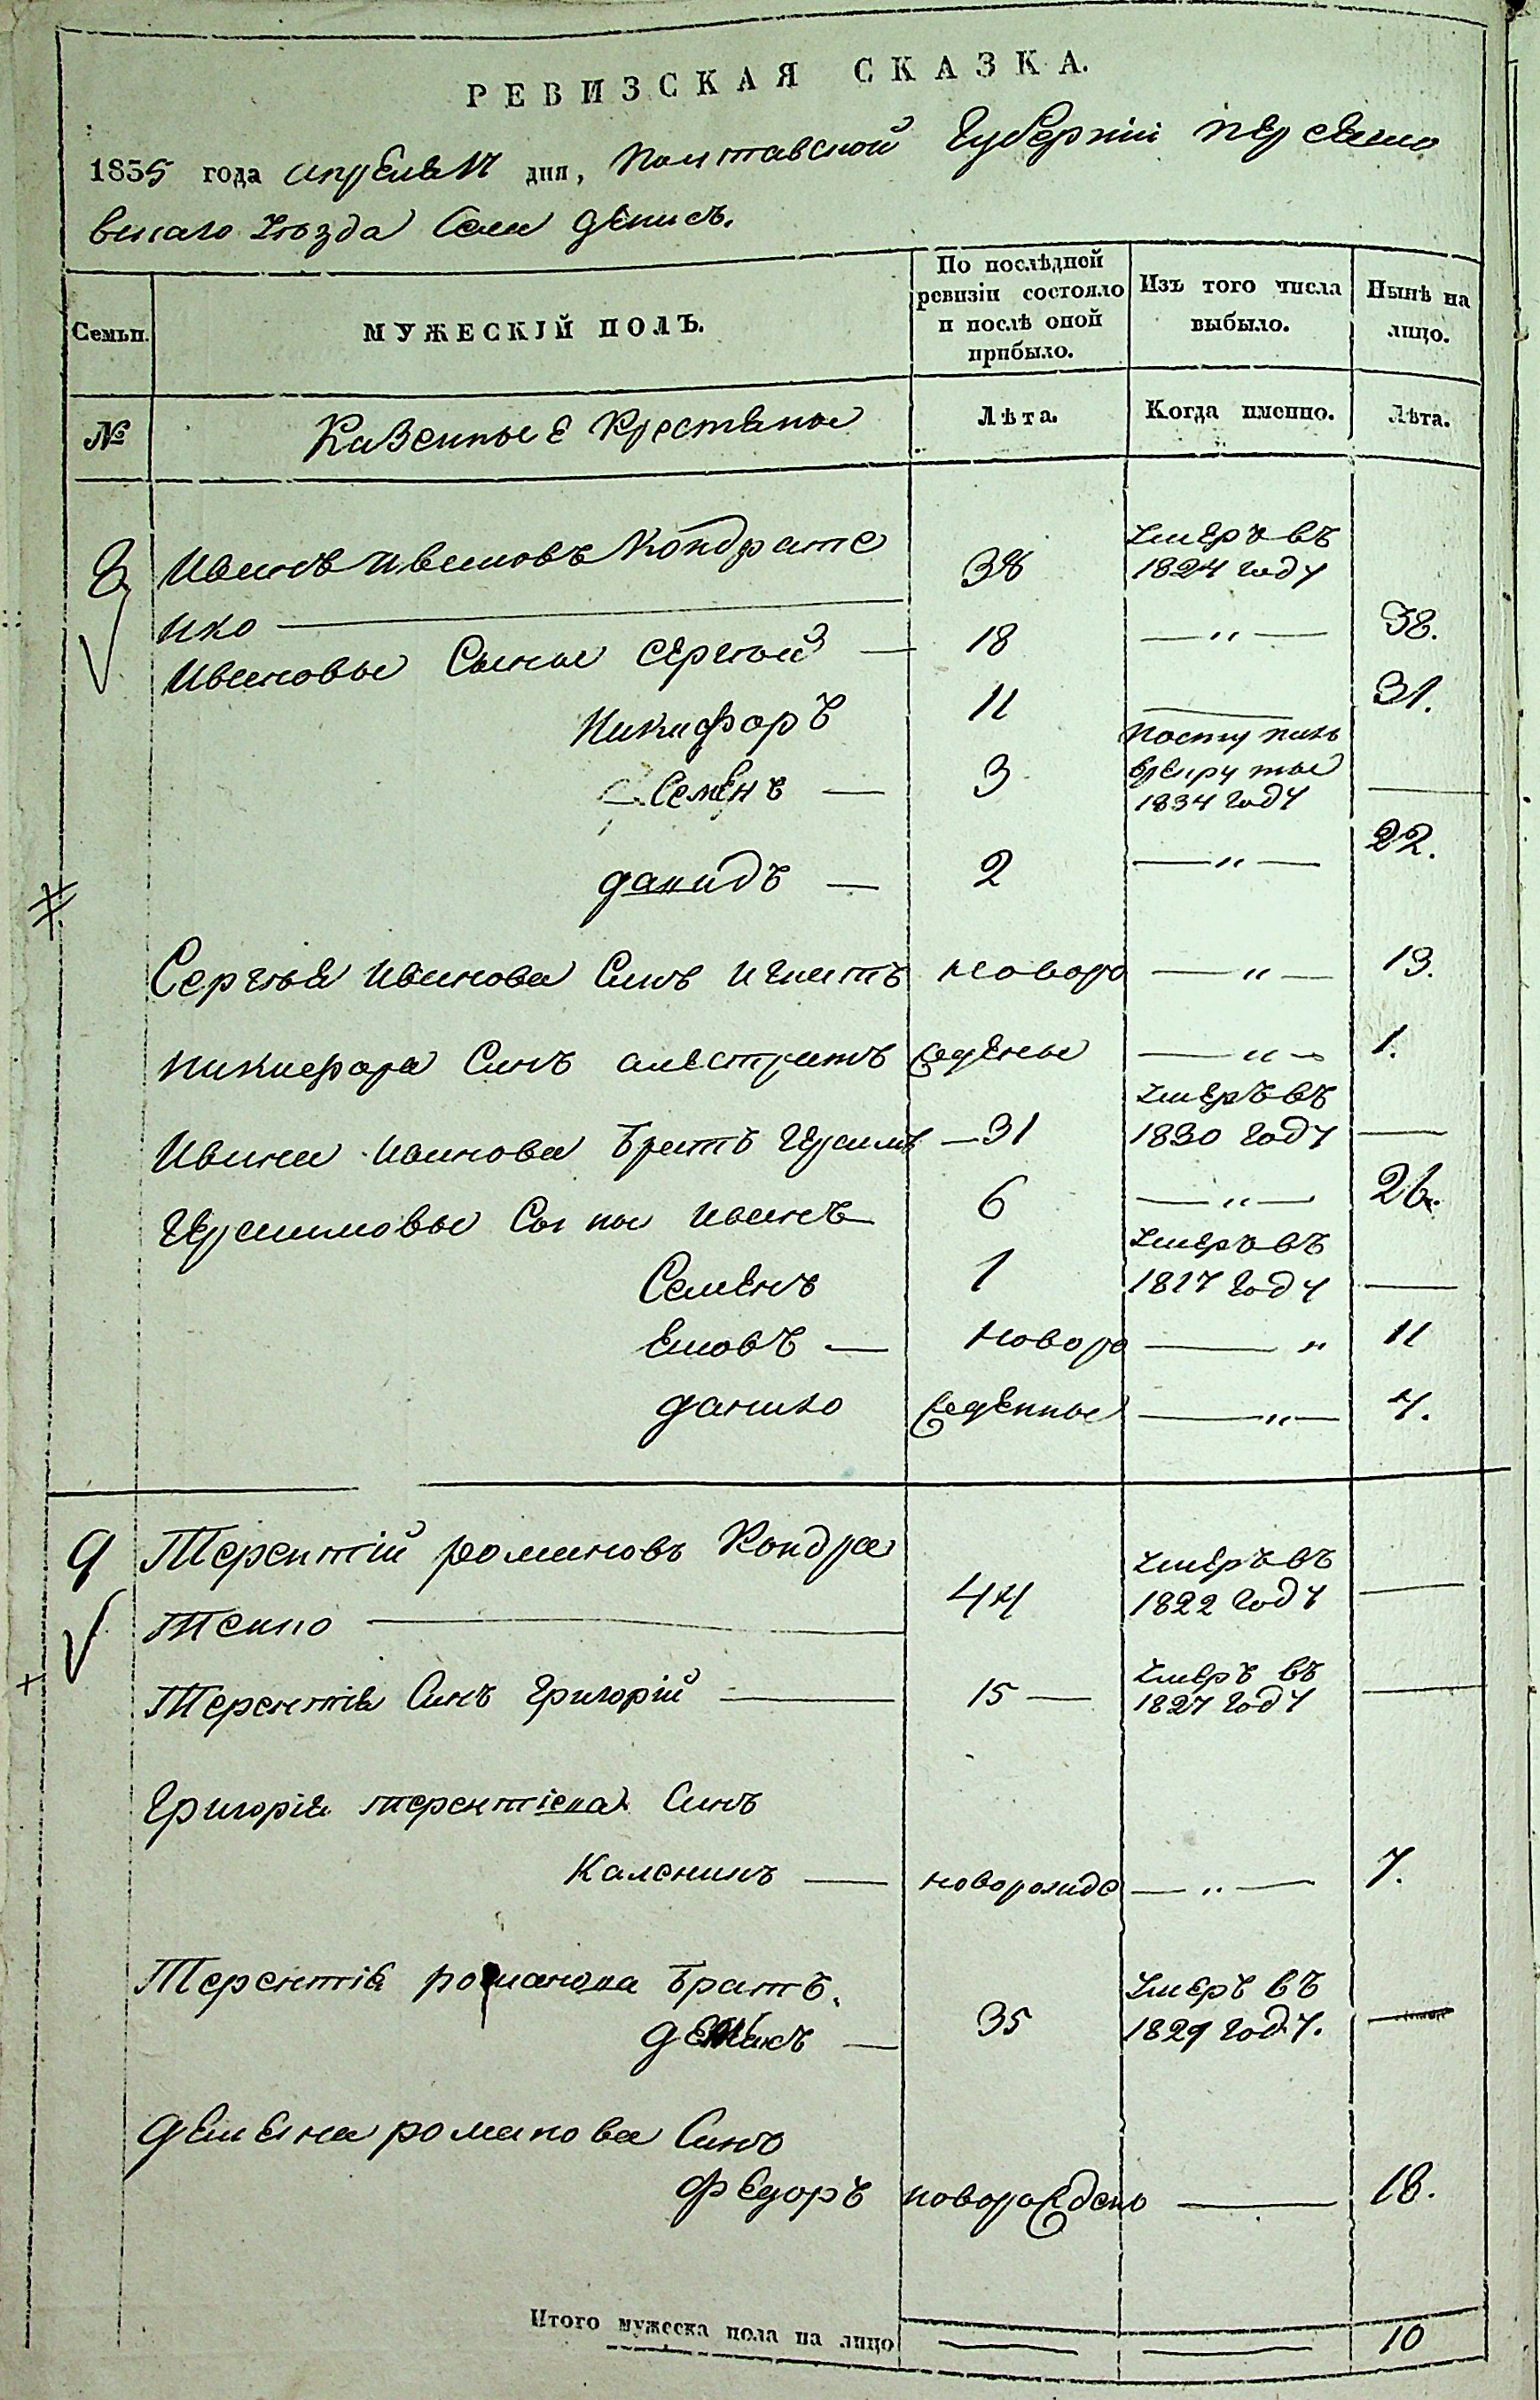 РЕВИЗСКАЯ СКАЗКА.
1835 года апреля 17 дня, Полтавской Губернии переясло
вскаго Уѣзда Села денисъ.
Семьи.
МУЖЕСКІЙ ПОЛЪ.
По послѣдней ревизіи состояло и послѣ оной прибыло.
Изъ того числа выбыло.
Нынѣ на лицо.
№ Казенные Крестьяне Лѣта. Когда именно. Лѣта.
8 Иванъ Ивановъ Кондрате 38 Умеръ въ 1824 году
нко
Ивановы Сыны Сергѣй — 18 — „ — 38.
Никифоръ 11 — 31.
Семенъ — 3 поступилъ 1834 году —
данидъ — 2 — „ — 22.
Сергѣя Иванова Синъ Игнатъ новоро — „ — 19.
Никифора Синъ жденые — „ — 1.
Ивана Иванова Братъ Герасимъ — 31 Умеръ въ 1830 году —
Герасимовы Сыны Иванъ 6 — „ — 26.
Семенъ 1 Умеръ въ 1817 году —
новоро — „ 11
данило жденные — „ — 4.
9 Терентій романовъ Кондра 44 Умеръ въ 1822 году —
тенко
Терентія Синъ Григорій — 15 — Умеръ въ 1827 году —
Григорія терентіева Синъ
Каленикъ — новорожде — „ — 7.
Терентія романова Братъ.
демянъ — 35 Умеръ въ 1829 году. —
демяна романова Синъ
Федоръ новорождено — 18.
Итого мужеска пола на лицо — — 10